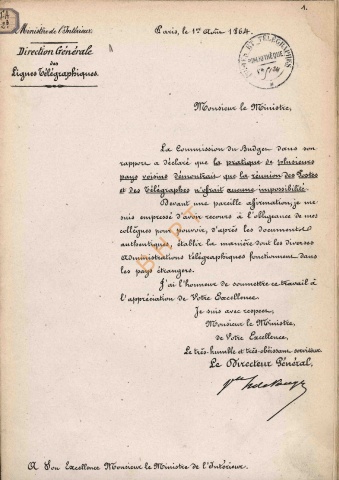 1.
Ministère de l'Intérieur.
Direction Générale
des
Lignes Télégraphiques.
Paris, le 1er Août 1864.
POSTES ET TÉLÉGRAPHES
BIBLIOTHÈQUE
Monsieur le Ministre,
La Commission du Budget dans son
rapport a déclaré que la pratique de plusieurs
pays voisins démontrait que la réunion des Postes
et des Télégraphes n'offrait aucune impossibilité.
Devant une pareille affirmation, je me
suis empressé d'avoir recours à l'obligeance de mes
collègues pour pouvoir, d'après les documents
authentiques, établir la manière dont les diverses
administrations télégraphiques fonctionnent dans
les pays étrangers.
J'ai l'honneur de soumettre ce travail à
l'appréciation de Votre Excellence.
Je suis avec respect,
Monsieur le Ministre,
de Votre Excellence,
Le très-humble et très-obéissant serviteur.
Le Directeur Général,
A Son Excellence Monsieur le Ministre de l'Intérieur.